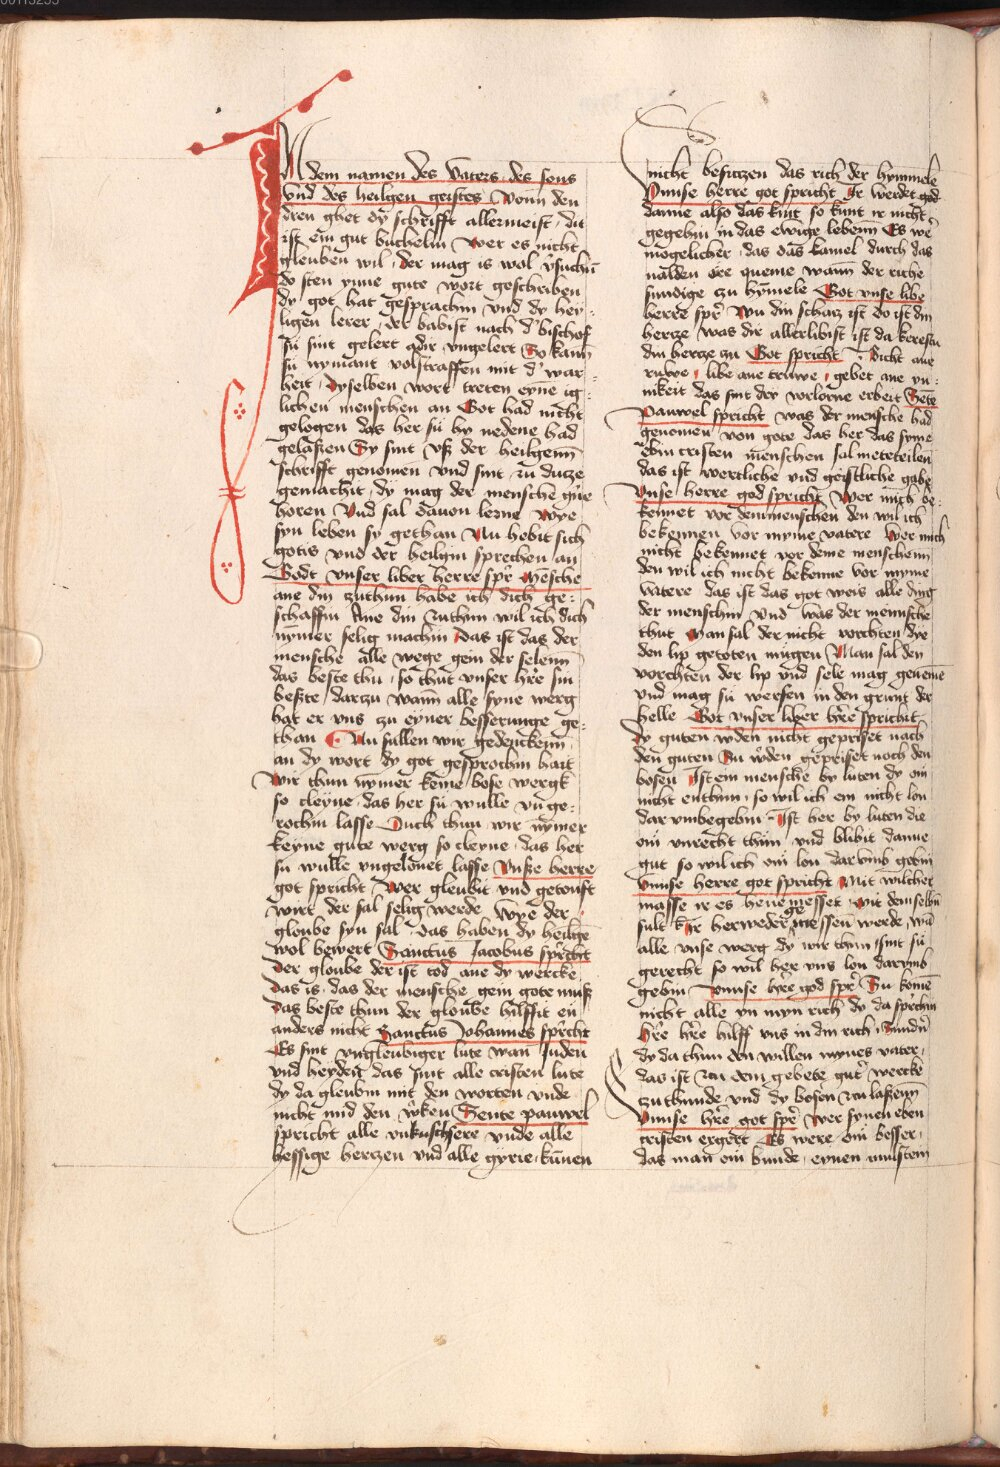 IN dem namen des vaters des sons
vnd des heilgen geistes Wenn den
dren ghet dy schrifft allermeist dit
ist ein gut buchelin Wer es nicht
gleuben wil der mag is wol vˢsuchn̄
do sten ynne gute wort geschriben
dy got hat gesprachin vnd dy hey-
ligen lerer der babist nach dˢ bischof
su sint gelert adir vngelert So kann̄
su nymant volstraffen mit dˢ war-
heit Dyselben wort treten eyne ig-
lichen menschen an Got had nicht
gelogen das her su hy nedene had
gelaßen Sy sint vß der heilgenn̄
schrifft genomen vnd sint zu dutze
gemachit dy mag der mensche gˢne
horen Vnd sal dauon lerne Wye
syn leben sy gethan Nu hebit sich
gotis vnd der heilgin sprechen an
Godt vnser liber herre sprˢ Mesche
ane din zuthun habe ich dich ge-
schaffin Ane din zuthun wil ich dich
nȳmer selig machin Das ist das der
mensche alle wege gein der selenn̄
das beste thu so thut vnser hˢre sin
beste darzu wann̄ alle syne werg
hat er vns zu eyner besserunge ge-
than Nu sullen wir gedenckenn
an dy wort dy got gesprochin hart
Wir thun nȳmer keine bose wergk
so cleyne das her su wulle vnge-
rochin lasse Ouch thun wir nȳmer
keyne gute werg so cleyne das her
su wulle vngelonet lasse Vnße herre
got spricht Wer gleubit vnd getouft
wirt der sal selig werde Wye der
gloube syn sal das haben dy heilgē
wol bewert Sanctus Jacobus sprˢcht
Der gloube der ist tod ane dy wercke
das is das der mensche gein gote muß
das beste thun der gloube hilffit en
anders nicht Sanctus Johannes sprˢcht
Es sint vngleubiger lute wan Juden
vnd heyden das sint alle cristen lute
dy da gleubin mit den worten vnde
nicht mid den wˢken Sente pauwel
spricht alle vnkuschsere vnde alle
hessige hertzen vnd alle gyrie kūnen
nicht besitczen das rich der hymmele
Vnnse herre got spricht Ir werdet god
danne also das kint so kunt ir nicht
gegehin in das ewige lebenn̄ Es wˢe
mogelicher das das kamel durch das
nalden ore queme wann̄ der riche
sundige zu hymele Got vnse libe
herre sprˢ Wu din schatz ist do ist din
hertze was dir allerlibist ist da kerestu
din hertze zu Got spricht Bicht ane
ruwe libe ane truwe gebet ane yn-
nikeit das sint dry vorlorne erbeit Sete
Pauwel spricht was der mensche had
genomen von gote das her das syme
ebin cristen menschen sal meteteilen
das ist wertliche vnd geistliche gabe
Vnse herre god spricht Wer mich be-
kennet vor denmenschen den wil ich
bekennen vor myme vatere Wer mich
nicht bekennet vor deme menschenn̄
den wil ich nicht bekenne vor myme
vatere das ist das got weis alle ding
der menschin vnd was der mennsche
thut Man sal der nicht vorchten dye
den lip getoten mugen Man sal den
vorchten der lip vnd sele mag geneme
vnd mag su werfen in den grunt der
helle Got vnser liber hˢre sprichit
Dy guten wˢden nicht gepriset nach
den guten Su wˢden gepriset noch den
bosen Ist em mensche by luten dy em
nicht enthun so wil ich em nicht lon
dar vmbegebin Ist her by luten die
om vnrecht thun vnd blibit danne
gut so wil ich om lon dar vmb gebin
Vnnse herre got spricht Mit wilcher
masse ir es henemesset mit demselbn
sult Ir herweder gemessenn werde wā
alle vnse werg dy wir thun sint su
gerecht so wil her vns lon darvmb
gebin Vnnse hˢre god sprˢ Su komē
nicht alle yn myn rich dy da sprˢchin
hˢre hˢre hilff vns in din rich Sundˢn
dy da thun den willen mynes vater
das ist zcu dem gebete gutˢ wercke
zuthunde vnd dy bosen zcu laßenn̄
Vnnse hˢre got sprˢ Wer synen ebin
cristen ergert Es were om besser
das man om bunde eynen mulstein